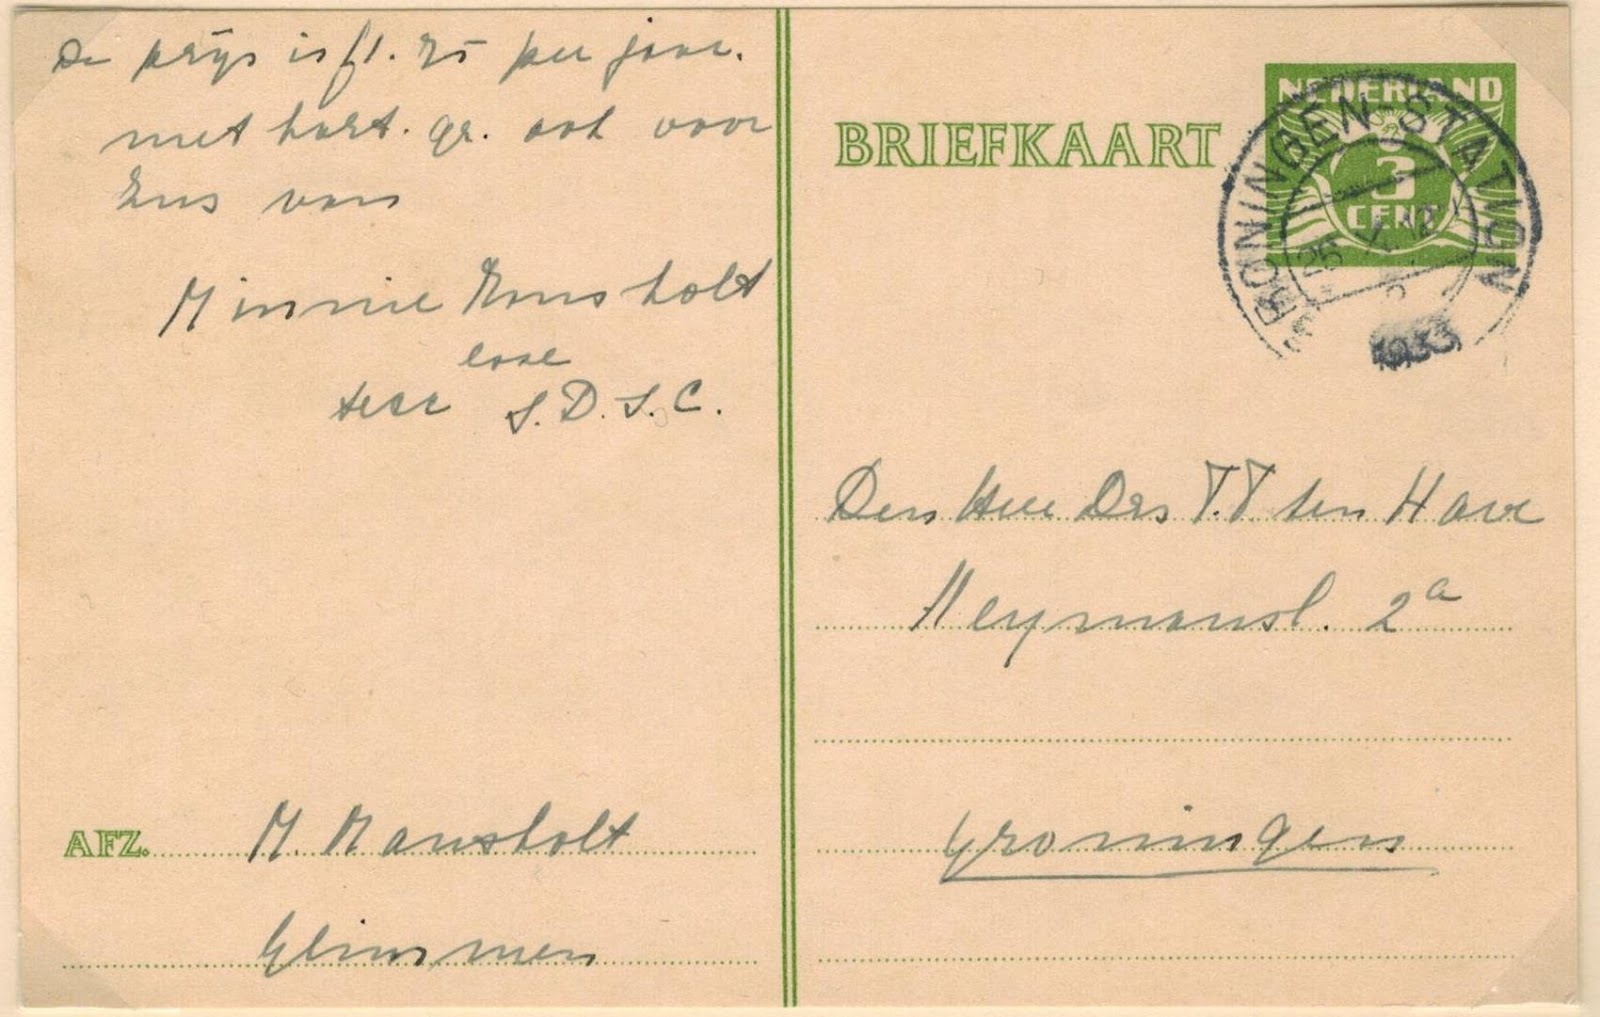 De prijs is fl. 25 per jaar.
met hart. gr. ook voor
van
Minnie Mansholt
S.D.S.C.
AFZ. M. Mansholt
Glimmen
BRIEFKAART
NEDERLAND
3
CENT
GRONINGEN-STATION
1933
Den Heer Drs T.T ten Have
Heymansl. 2a
Groningen